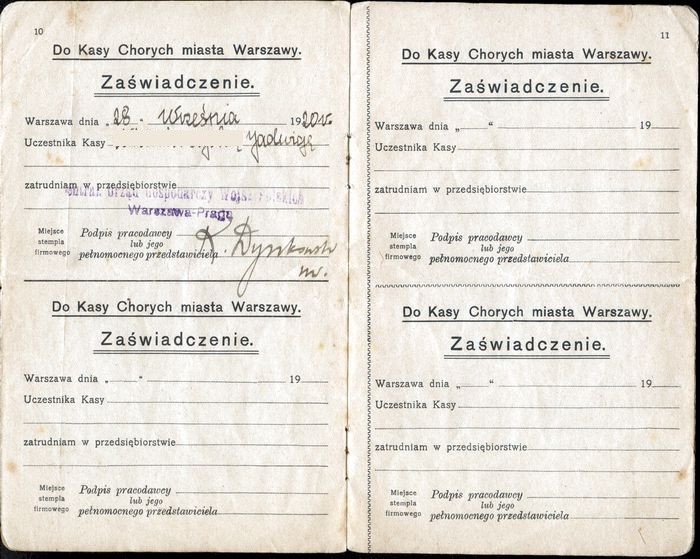 10
Do Kasy Chorych miasta Warszawy.
Zaświadczenie.
Warszawa dnia „28 “ Września 1920 r.
Uczestnika Kasy Jadwigę
zatrudniam w przedsiębiorstwie
Urząd Gospodarczy Wojsk Polskich
Warszawa-Praga
Miejsce stempla firmowego
Podpis pracodawcy
lub jego
pełnomocnego przedstawiciela
Do Kasy Chorych miasta Warszawy.
Zaświadczenie.
Warszawa dnia „ “ 19
Uczestnika Kasy
zatrudniam w przedsiębiorstwie
Miejsce stempla firmowego
Podpis pracodawcy
lub jego
pełnomocnego przedstawiciela
11
Do Kasy Chorych miasta Warszawy.
Zaświadczenie.
Warszawa dnia „ “ 19
Uczestnika Kasy
zatrudniam w przedsiębiorstwie
Miejsce stempla firmowego
Podpis pracodawcy
lub jego
pełnomocnego przedstawiciela
Do Kasy Chorych miasta Warszawy.
Zaświadczenie.
Warszawa dnia „ “ 19
Uczestnika Kasy
zatrudniam w przedsiębiorstwie
Miejsce stempla firmowego
Podpis pracodawcy
lub jego
pełnomocnego przedstawiciela